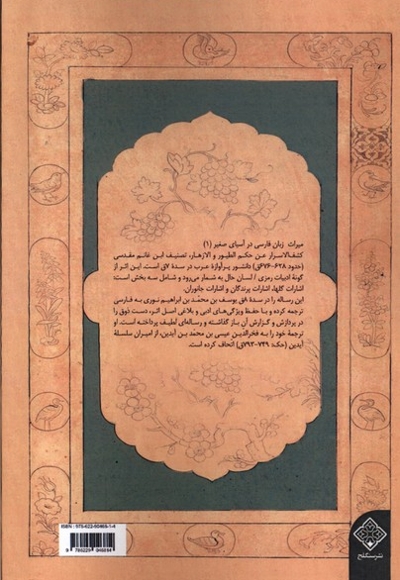 میراث زبان فارسی در آسیای صغیر (۱)
کشف‌الاسرار عن حکم الطیور و الازهار، تصنیف ابن غانم مقدسی
(حدود ۶۲۸-۶۷۶ق) دانشور پرآوازهٔ عرب در سدهٔ ۷ق است. این اثر از
گونهٔ ادبیات رمزی / لسان حال به شمار می‌رود و شامل سه بخش است:
اشارات گلها، اشارات پرندگان و اشارات جانوران.
این رساله را در سدهٔ ۸ق یوسف بن محمّد بن ابراهیم نوری به فارسی
ترجمه کرده و با حفظ ویژگی‌های ادبی و بلاغی اصل اثر، دست ذوق را
در پردازش و گزارش آن باز گذاشته و رساله‌ای لطیف پرداخته است. او
ترجمهٔ خود را به فخرالدین عیسی بن محمد بن آیدین، از امیران سلسلهٔ
آیدین (حک: ۷۴۹-۷۹۳ق) اتحاف کرده است.